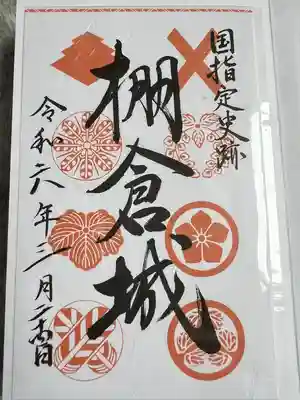 国指定史跡
棚倉城
令和六年三月二十六日